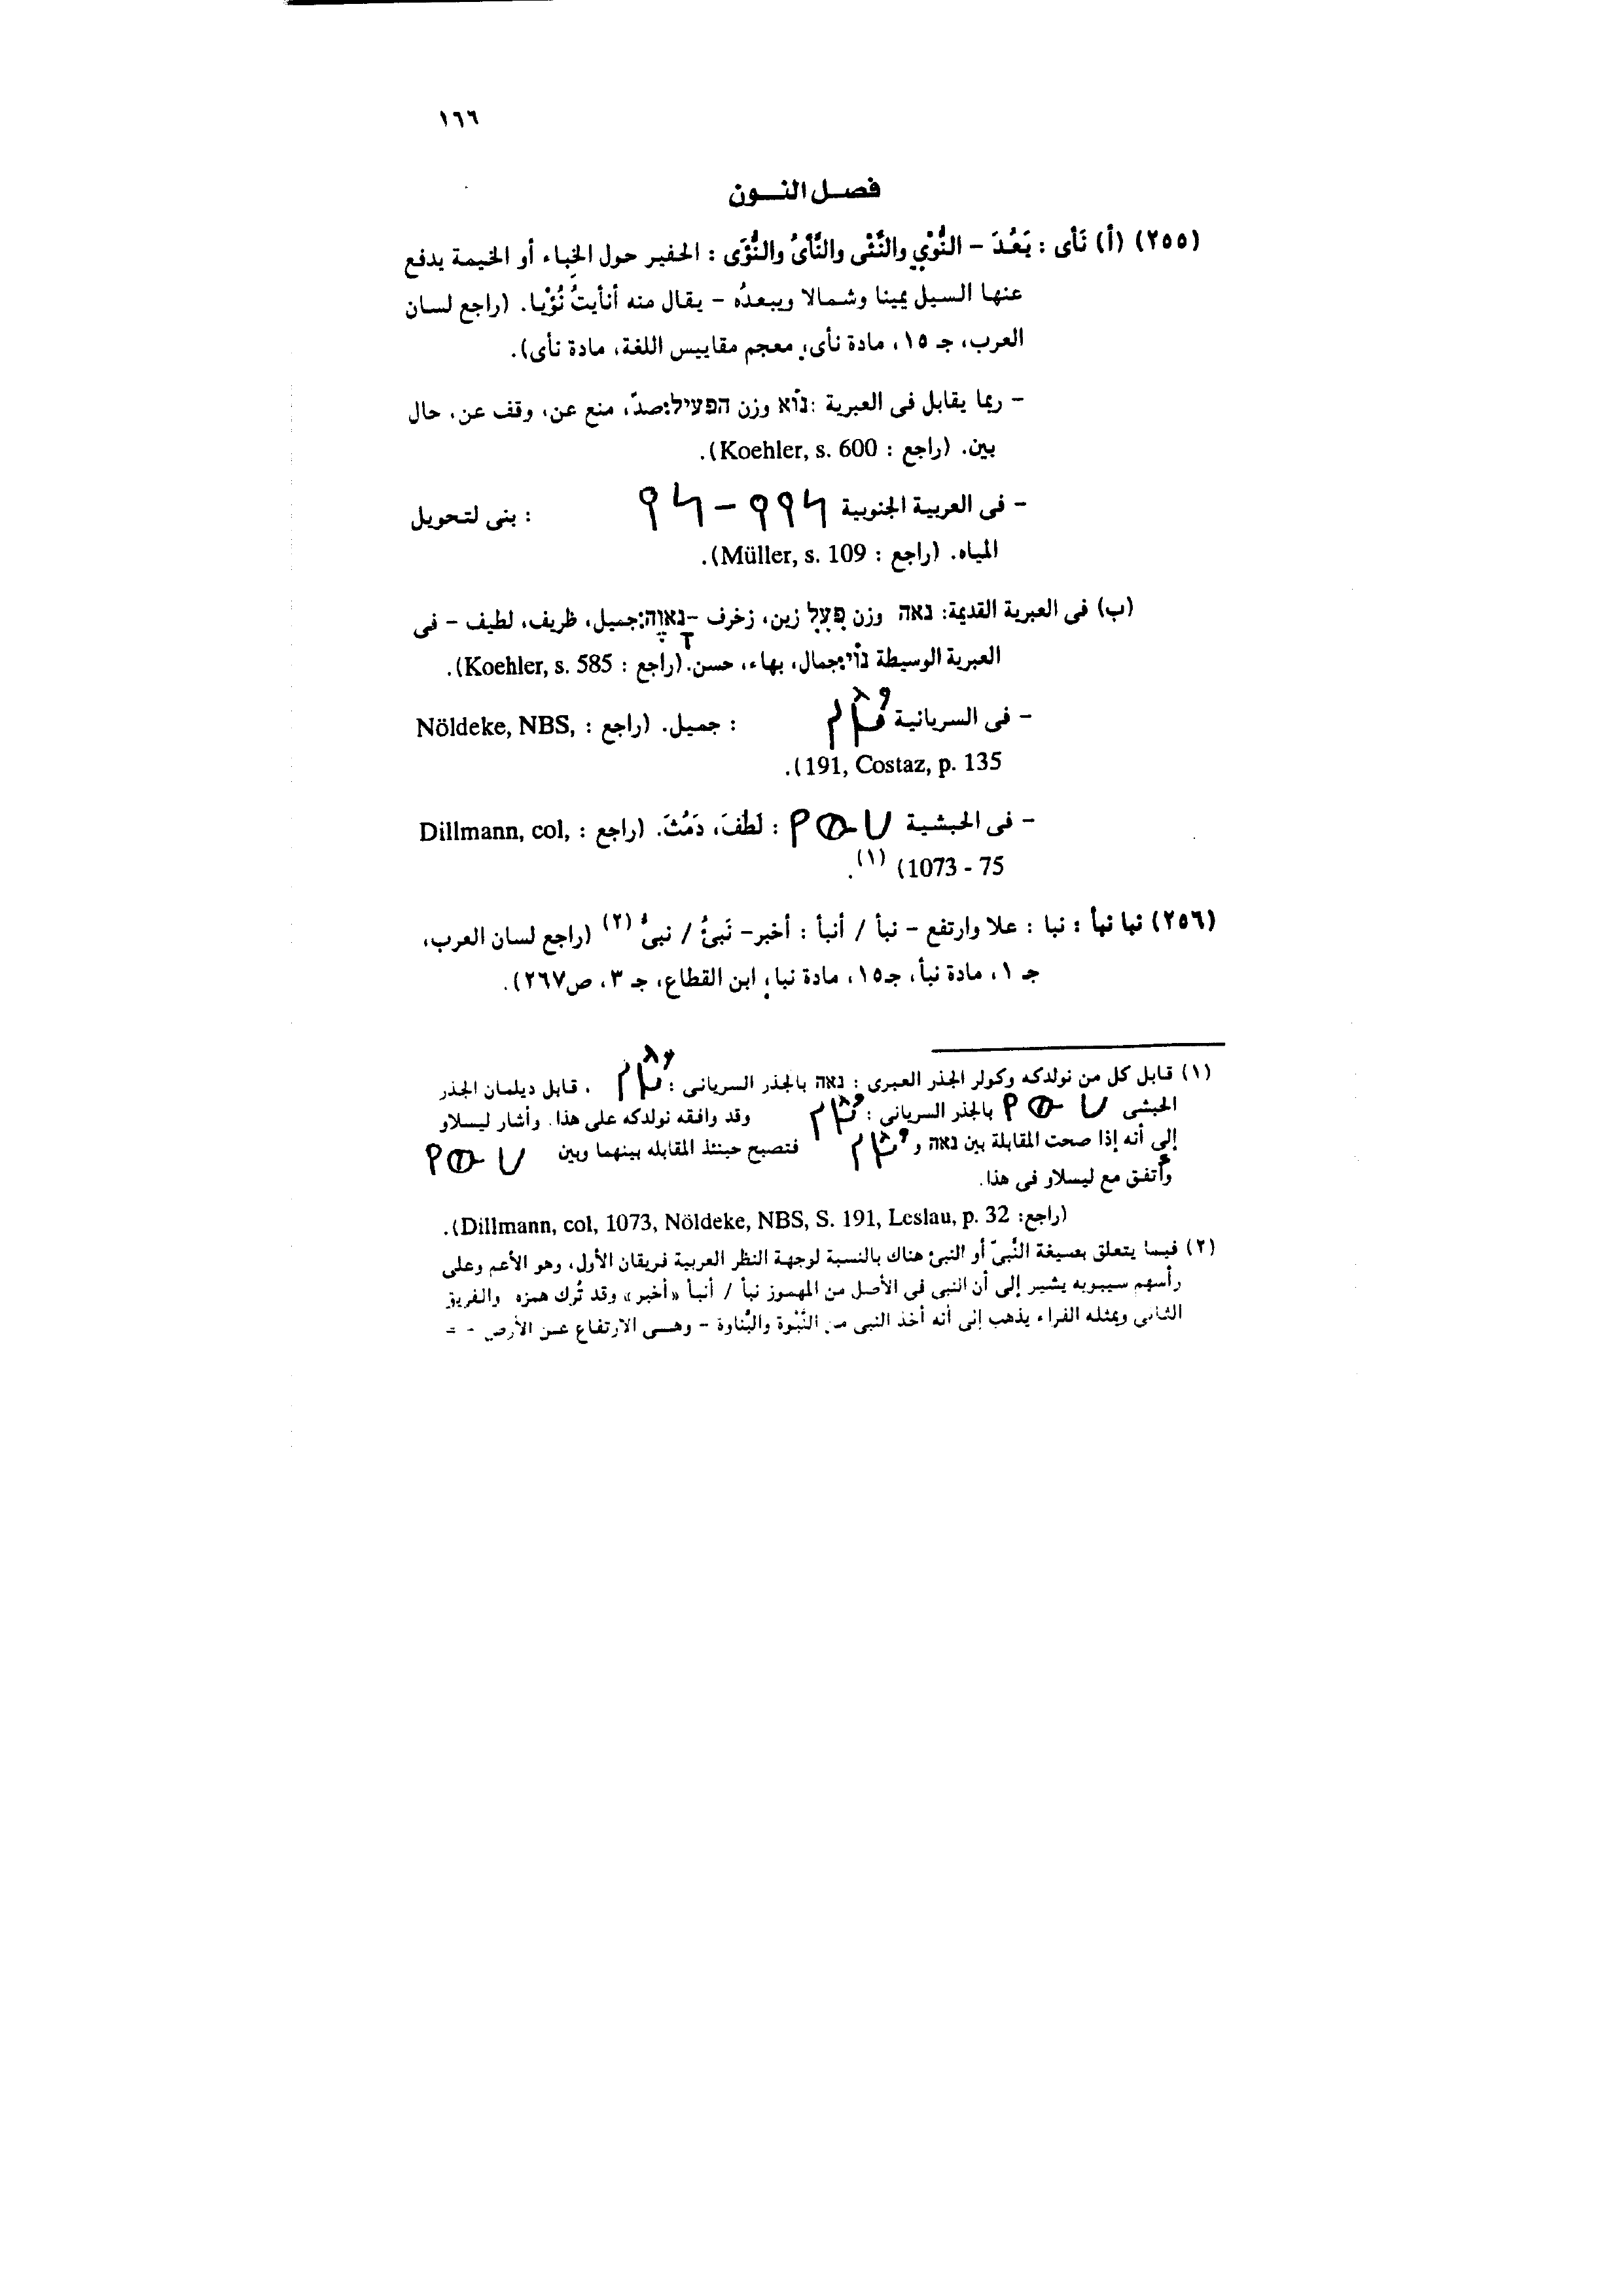 ١٦٦
فصل النون
(٢٥٥) (أ) نَأى : بَعُدَ – النُّوْي والنِّئْى والنَّأىُ والنُّؤَى : الحفير حول الخِباء أو الخيمة يدفع
عنها السيل يمينا وشمالا ويبعدُه – يقال منه أنأيتُ نُؤْيا. (راجع لسان
العرب، جـ ١٥، مادة نأى، معجم مقاييس اللغة، مادة نأى).
– ربما يقابل فى العبرية : נוֹא وزن הפעיל: صدّ، منع عن، وقف عن، حال
بين. (راجع : Koehler, s. 600).
– فى العربية الجنوبية : بنى لتحويل
المياه. (راجع : Müller, s. 109).
(ب) فى العبرية القديمة: נאה وزن פִעֵל زين، زخرف – נָאוֶה: جميل، ظريف، لطيف – فى
العبرية الوسيطة נוֹי: جمال، بهاء، حسن. (راجع : Koehler, s. 585).
– فى السريانية : جميل. (راجع : Nöldeke, NBS,
191, Costaz, p. 135).
– فى الحبشية : لَطُفَ، دَمُثَ. (راجع : Dillmann, col,
1073 - 75) (١).
(٢٥٦) نبا نبأ : نبا : علا وارتفع – نبأ / أنبأ : أخبر– نَبئُ / نبىُّ (٢) (راجع لسان العرب،
جـ ١، مادة نبأ، جـ١٥، مادة نبا، ابن القطاع، جـ ٣، ص٢٦٧).
(١) قابل كل من نولدكه وكولر الجذر العبرى : נאה بالجذر السريانى : . قابل ديلمان الجذر
الحبشى بالجذر السريانى : وقد وافقه نولدكه على هذا. وأشار ليسلاو
إلى أنه إذا صحت المقابلة بين נאה و فتصبح حينئذ المقابله بينهما وبين
وأتفق مع ليسلاو فى هذا.
(راجع: Dillmann, col, 1073, Nöldeke, NBS, S. 191, Leslau, p. 32).
(٢) فيما يتعلق بصيغة النَّبىّ أو النبئ هناك بالنسبة لوجهة النظر العربية فريقان الأول، وهو الأعم وعلى
رأسهم سيبويه يشير إلى أن النبى فى الأصل من المهموز نبأ / أنبأ «أخبر» وقد تُرك همزه والفريق
الثانى ويمثله الفراء يذهب إلى أنه أخذ النبى من النَّبْوة والنَّباوة – وهى الارتفاع عن الأرض - =